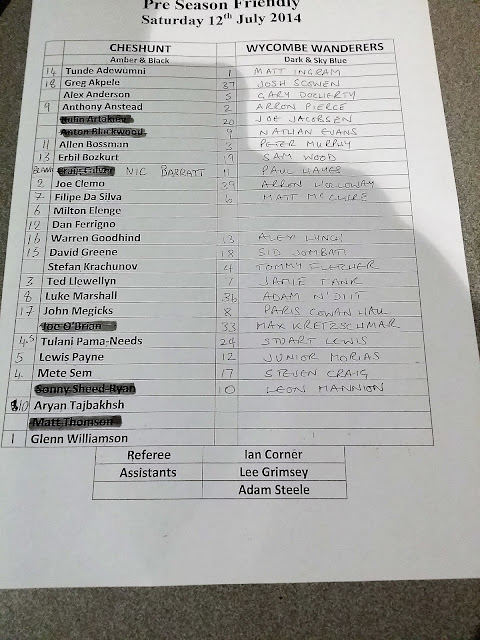 Pre Season Friendly
Saturday 12th July 2014
CHESHUNT WYCOMBE WANDERERS
Amber & Black Dark & Sky Blue
14 Tunde Adewumni 1 MATT INGRAM
18 Greg Akpele 37 JOSH SCOWEN
Alex Anderson 5 GARY DOCHERTY
9 Anthony Anstead 2 ARRON PIERCE
20 JOE JACOBSEN
Anton Blackwood 9 NATHAN EVANS
11 Allen Bossman 3 PETER MURPHY
13 Erbil Bozkurt 19 SAM WOOD
NIC BARRATT 11 PAUL HAYES
2 Joe Clemo 39 ARRON HOLLOWAY
7 Filipe Da Silva 6 MATT McCLURE
6 Milton Elenge
12 Dan Ferrigno
16 Warren Goodhind 13 ALEX LYNCH
15 David Greene 18 SID JOMBATI
Stefan Krachunov 4 TOMMY FLETCHER
3 Ted Llewellyn 7 JAMIE
8 Luke Marshall 36 ADAM
17 John Megicks 8 PARIS COWAN HALL
Joe O'Brian 33 MAX KRETZSCHMAR
Tulani Pama-Needs 24 STUART LEWIS
5 Lewis Payne 12 JUNIOR MORIAS
4 Mete Sem 17 STEVEN CRAIG
Sonny Sheed-Ryan 10 LEON MANNION
10 Aryan Tajbakhsh
Matt Thomson
1 Glenn Williamson
Referee Ian Corner
Assistants Lee Grimsey
Adam Steele